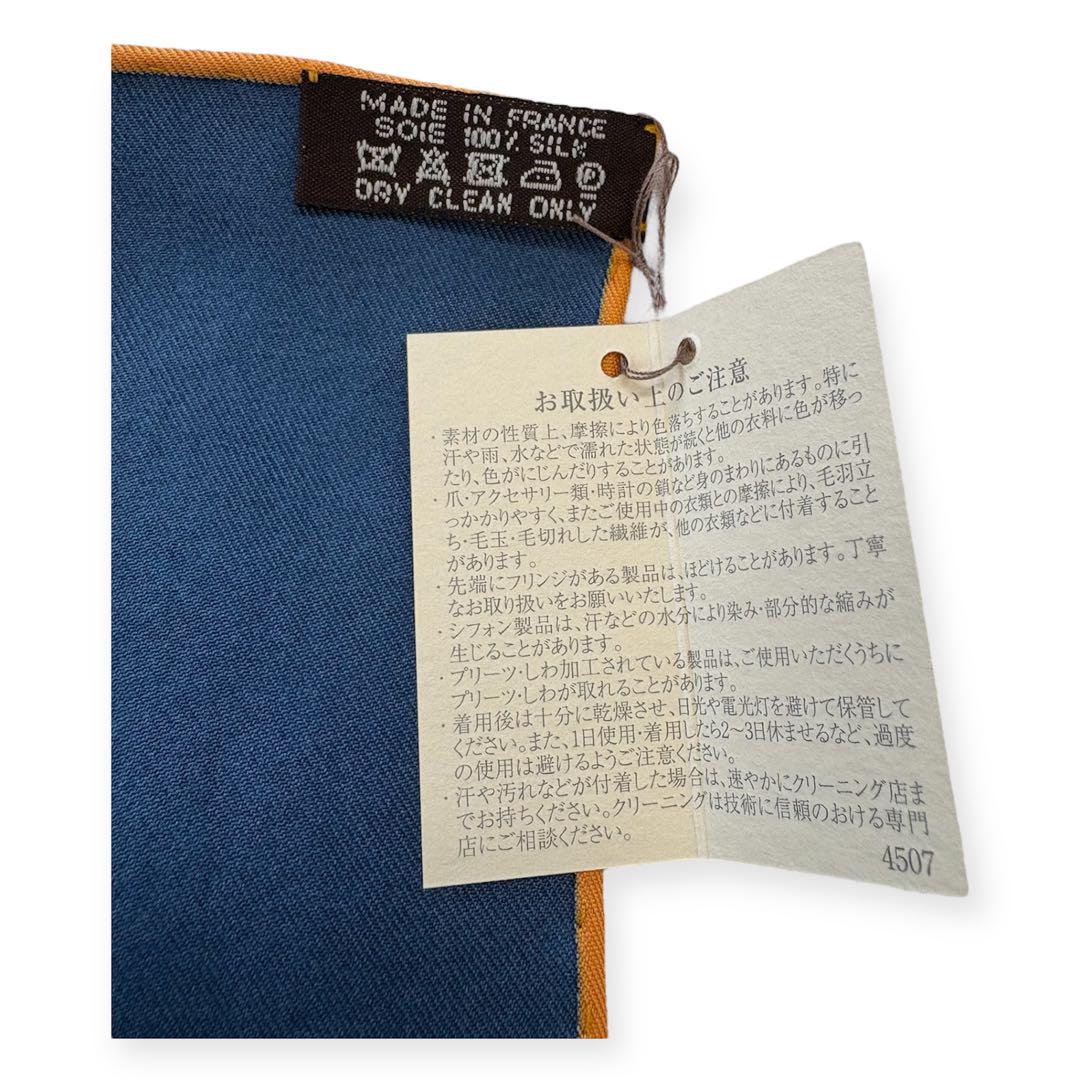 MADE IN FRANCE
SOIE 100% SILK
DRY CLEAN ONLY
お取扱い上のご注意
・素材の性質上、摩擦により色落ちすることがあります。特に
汗や雨、水などで濡れた状態が続くと他の衣料に色が移っ
たり、色がにじんだりすることがあります。
・爪・アクセサリー類・時計の鎖など身のまわりにあるものに引
っかかりやすく、またご使用中の衣類との摩擦により、毛羽立
ち・毛玉・毛切れした繊維が、他の衣類などに付着すること
があります。
・先端にフリンジがある製品は、ほどけることがあります。丁寧
なお取り扱いをお願いいたします。
・シフォン製品は、汗などの水分により染み・部分的な縮みが
生じることがあります。
・プリーツ・しわ加工されている製品は、ご使用いただくうちに
プリーツ・しわが取れることがあります。
・着用後は十分に乾燥させ、日光や電光灯を避けて保管して
ください。また、1日使用・着用したら2〜3日休ませるなど、過度
の使用は避けるようご注意ください。
・汗や汚れなどが付着した場合は、速やかにクリーニング店ま
でお持ちください。クリーニングは技術に信頼のおける専門
店にご相談ください。
4507